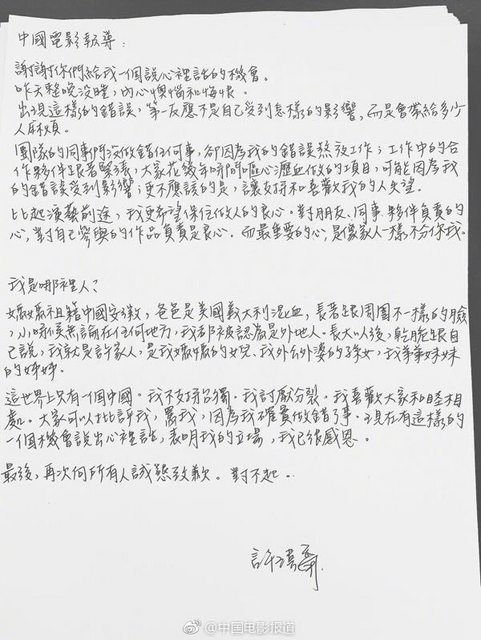 中國電影報導：
謝謝你們給我一個說心裡話的機會。
昨天整晚沒睡，內心懊惱和悔恨。
出現這樣的錯誤，第一反應不是自己受到怎樣的影響，而是會帶給多少
人麻煩。
團隊的同事們沒做錯任何事，卻因為我的錯誤熬夜工作；工作中的合
作夥伴跟著緊張，大家花幾年時間嘔心瀝血做的項目，可能因為我
的錯誤受到影響，更不應該的是，讓支持和喜歡我的人失望。
比起演藝前途，我更希望保住做人的良心。對朋友、同事、夥伴負責的
心，對自己參與的作品負責是良心。而最重要的心，是像家人一樣不分你我。
我是哪裡人？
媽媽祖籍中國安徽，爸爸是美國義大利混血，長著跟周圍不一樣的臉
，小時候無論在任何地方，我都被認為是外地人。長大以後，乾脆跟自
己說，我就是許家人，是我媽媽的女兒、我外公外婆的孫女，我弟弟妹妹
的姊姊。
這世界上只有一個中國。我不支持台獨。我討厭分裂。我喜歡大家和睦相
處。大家可以批評我，罵我，因為我確實做錯了事。現在有這樣的
一個機會說出心裡話，表明我的立場，我已很感恩。
最後，再次向所有人誠懇致歉。對不起。
許瑋甯
@中国电影报道